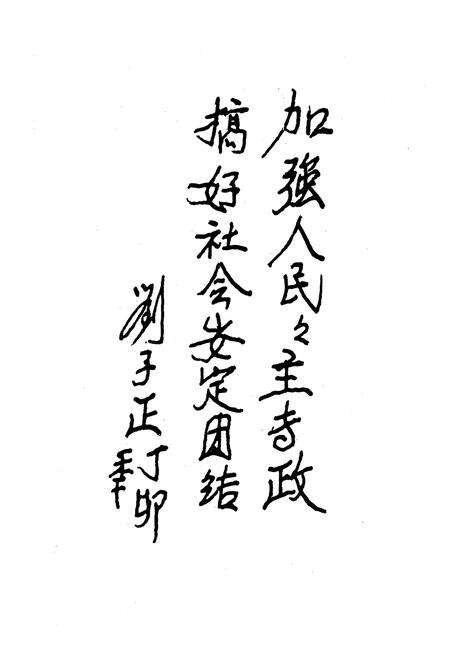 加強人民々主专政
搞好社会安定团结
劉子正丁卯